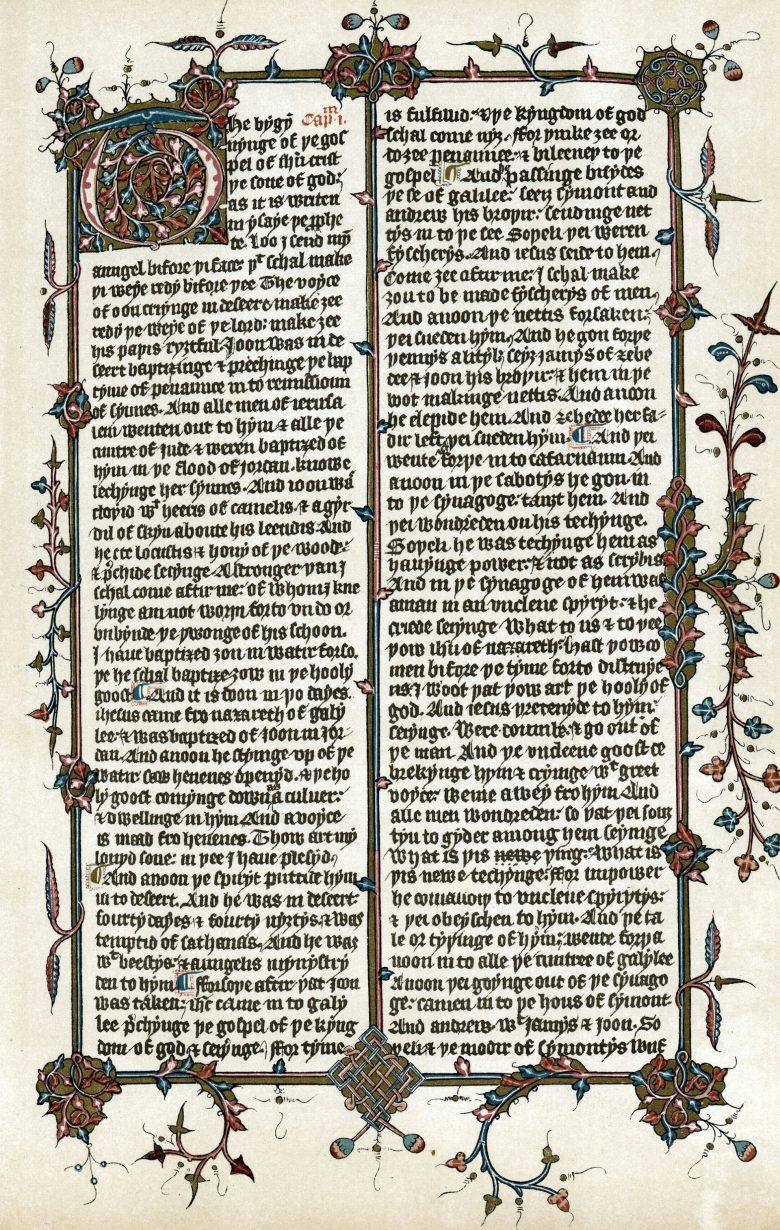 Cap. i.m
The bygyn
nynge of þe gos
pel of ihū crist
þe sone of god:
as it is writen
in ysaye þe pphe
te. Loo I send my
aungel bifore þi face: þt schal make
þi weye redy bifore þee The voyce
of oon criynge in deseert make zee
redy þe weye of þe lord: make zee
his paþis ryztful. Joon was in de
seert baptizinge & prechinge þe bap
tyme of penaunce in to remissioun
of synnes. And alle men of ierusa
lem wenten out to hym & alle þe
cuntre of iude & weren baptized of
hym in þe flood of iordan. knowe
lechynge her synnes. And ioon was
cloþid wt heeris of camelis & a gyr
dil of skyn aboute his leendis. And
he ete locustis & hony of þe wode:
& pchide seiynge A stronger þan I
schal come aftir me: of whom I kne
lynge am not worþi forto vndo or
vnbynde þe þwonge of his schoon.
I haue baptized zou in watir forsoþe.
þe he schal baptize zow in þe hooly
goost And it is doon in þo dayes.
ihesus came fro nazareth of galy
lee: & was baptized of ioon in Jor
dan. And anoon he styinge vp of þe
watir: saw heuenes openyd. & þe ho
ly goost comynge down as a culuer:
& dwellinge in hym And a voyce
is maad fro heuenes. Thow art my
louyd sone: in þee I haue plesyd.
And anoon þe spiryt puttide hym
in to desert. And he was in deseert
fourty dayes & fourty nyztys. & was
temptid of sathanas. And he was
wt beestys: & aungelis mynystry
den to hym fforsoþe aftir þat Joon
was taken: ihc came in to galy
lee pchynge þe gospel of þe kyng
dom of god & seiynge. ffor tyme
is fulfillid: & þe kyngdom of god
schal come nyz. ffor þinke zee or
do zee penaunce: & bileeuey to þe
gospel And he passinge bisydes
þe se of galilee: seez symont and
andrew his broþir: sendinge net
tys in to þe see Soþeli þei weren
fyscherys. And iesus seide to hem.
Come zee aftir me: I schal make
zou to be made fyscherys of men.
And anoon þe nettis forsaken:
þei sueden hym. And he gon forþe
þennys a lityl: seyz Jamys of zebe
dee & ioon his broþir: & hem in þe
boot makinge nettis. And anoon
he clepide hem. And zebedee her fa-
dir left: þei sueden hym. And þei
wente forþe in to cafarnaum And
anoon in þe sabotys he gon in
to þe synagoge: tauzt hem. And
þei wondreden on his techynge.
Soþeli he was techynge hem as
hauynge power: & not as scrybis
And in þe synagoge of hem was
a man in an vnclene spyryt: & he
criede seiynge What to us & to þee
þow ihū of nazareth: hast þow co
men bifore þe tyme forto distruye
us. I woot þat þow art þe hooly of
god. And iesus þretenyde to hym:
seiynge. Were doumb: & go out of
þe man. And þe vncleene goost de
brekynge hym & cryinge wt greet
voyce: wente awey fro hym And
alle men wondreden: so þat þei souz
tyn to gyder among hem seyinge
What is þis newe þing: What is
þis newe techynge: ffor in power
he comaundiþ to vnclene spyrytys:
& þei obeyschen to hym. And þe ta
le or tyþinge of hym: wente forþ a
noon in to alle þe cuntree of galylee
Anoon þei goynge out of þe synago
ge: camen in to þe hous of symont
And andrew wt Jamys & Joon. So
þeli & þe modir of symontys wiif